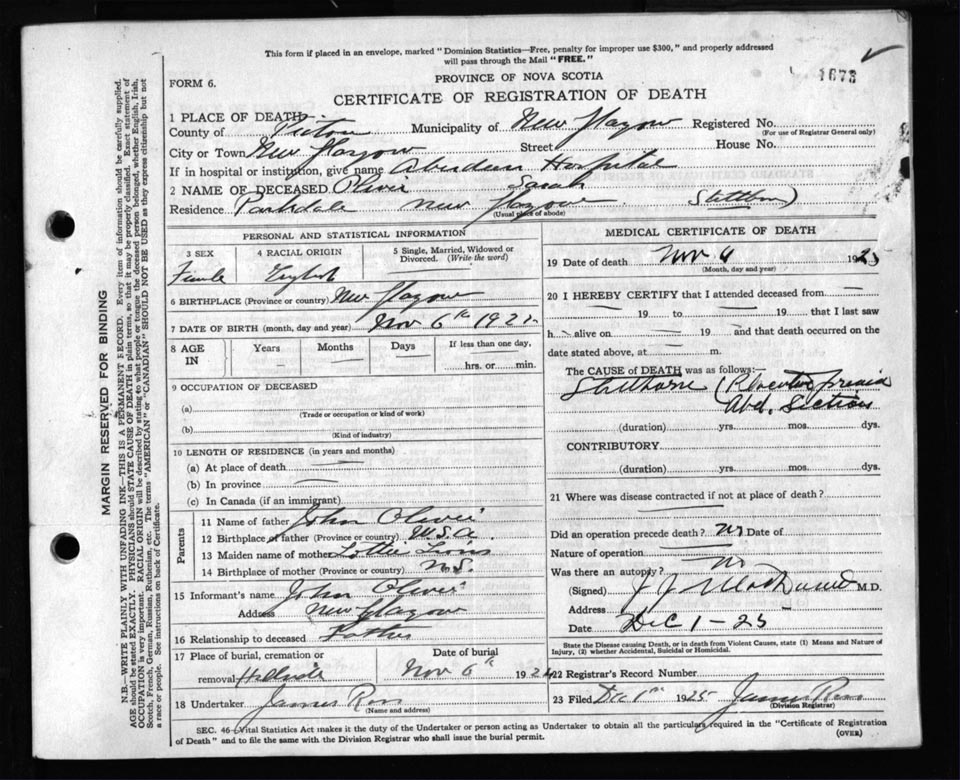 This form if placed in an envelope, marked "Dominion Statistics—Free, penalty for improper use $300," and properly addressed
will pass through the Mail "FREE."
PROVINCE OF NOVA SCOTIA
1673
FORM 6.
CERTIFICATE OF REGISTRATION OF DEATH
1 PLACE OF DEATH:
County of Pictou Municipality of New Glasgow Registered No.
(For use of Registrar General only)
City or Town New Glasgow Street House No.
If in hospital or institution, give name Aberdeen Hospital
2 NAME OF DECEASED Oliver Sarah
Residence Parkdale New Glasgow (Stillborn)
(Usual place of abode)
PERSONAL AND STATISTICAL INFORMATION
3 SEX
4 RACIAL ORIGIN
5 Single, Married, Widowed or
Divorced. (Write the word)
Female English
6 BIRTHPLACE (Province or country) New Glasgow
7 DATE OF BIRTH (month, day and year) Nov 6th
8 AGE
IN
Years Months Days If less than one day,
hrs. or min.
9 OCCUPATION OF DECEASED
(a)
(Trade or occupation or kind of work)
(b)
(Kind of industry)
10 LENGTH OF RESIDENCE (in years and months)
(a) At place of death
(b) In province
(c) In Canada (if an immigrant)
Parents
11 Name of father John Oliver
12 Birthplace of father (Province or country) U.S.A.
13 Maiden name of mother Lottie
14 Birthplace of mother (Province or country) N.S.
15 Informant's name John Oliver
Address New Glasgow
16 Relationship to deceased Father
17 Place of burial, cremation or
removal Hillside
Date of burial
Nov 6th 192
18 Undertaker James Ross
(Name and address)
MEDICAL CERTIFICATE OF DEATH
19 Date of death Nov 6 192
(Month, day and year)
20 I HEREBY CERTIFY that I attended deceased from
19 to 19 that I last saw
h alive on 19 and that death occurred on the
date stated above, at m.
The CAUSE of DEATH was as follows:
Stillborn (Placenta previa
Abd. Section
(duration) yrs. mos. dys.
CONTRIBUTORY
(duration) yrs. mos. dys.
21 Where was disease contracted if not at place of death?
Did an operation precede death? No Date of
Nature of operation
Was there an autopsy? No
(Signed) J J MacDonald M.D.
Address
Date Dec 1-25
State the Disease causing Death, or in death from Violent Causes, state (1) Means and Nature of
Injury, (2) whether Accidental, Suicidal or Homicidal.
22 Registrar's Record Number
23 Filed Dec 1st 1925 James Ross
(Division Registrar)
SEC. 46—Vital Statistics Act makes it the duty of the Undertaker or person acting as Undertaker to obtain all the particulars required in the "Certificate of Registration
of Death" and to file the same with the Division Registrar who shall issue the burial permit.
(OVER)
MARGIN RESERVED FOR BINDING
N.B.—WRITE PLAINLY WITH UNFADING INK—THIS IS A PERMANENT RECORD. Every item of information should be carefully supplied.
AGE should be stated EXACTLY. PHYSICIANS should STATE CAUSE OF DEATH in plain terms, so that it may be properly classified. Exact statement of
OCCUPATION is very important. RACIAL ORIGIN will be described by stating to what people or tongue the deceased person belonged, whether English, Irish,
Scotch, French, German, Russian, Ruthenian, etc. The terms "AMERICAN" or "CANADIAN" SHOULD NOT BE USED as they express citizenship but not
a race or people. See instructions on back of Certificate.